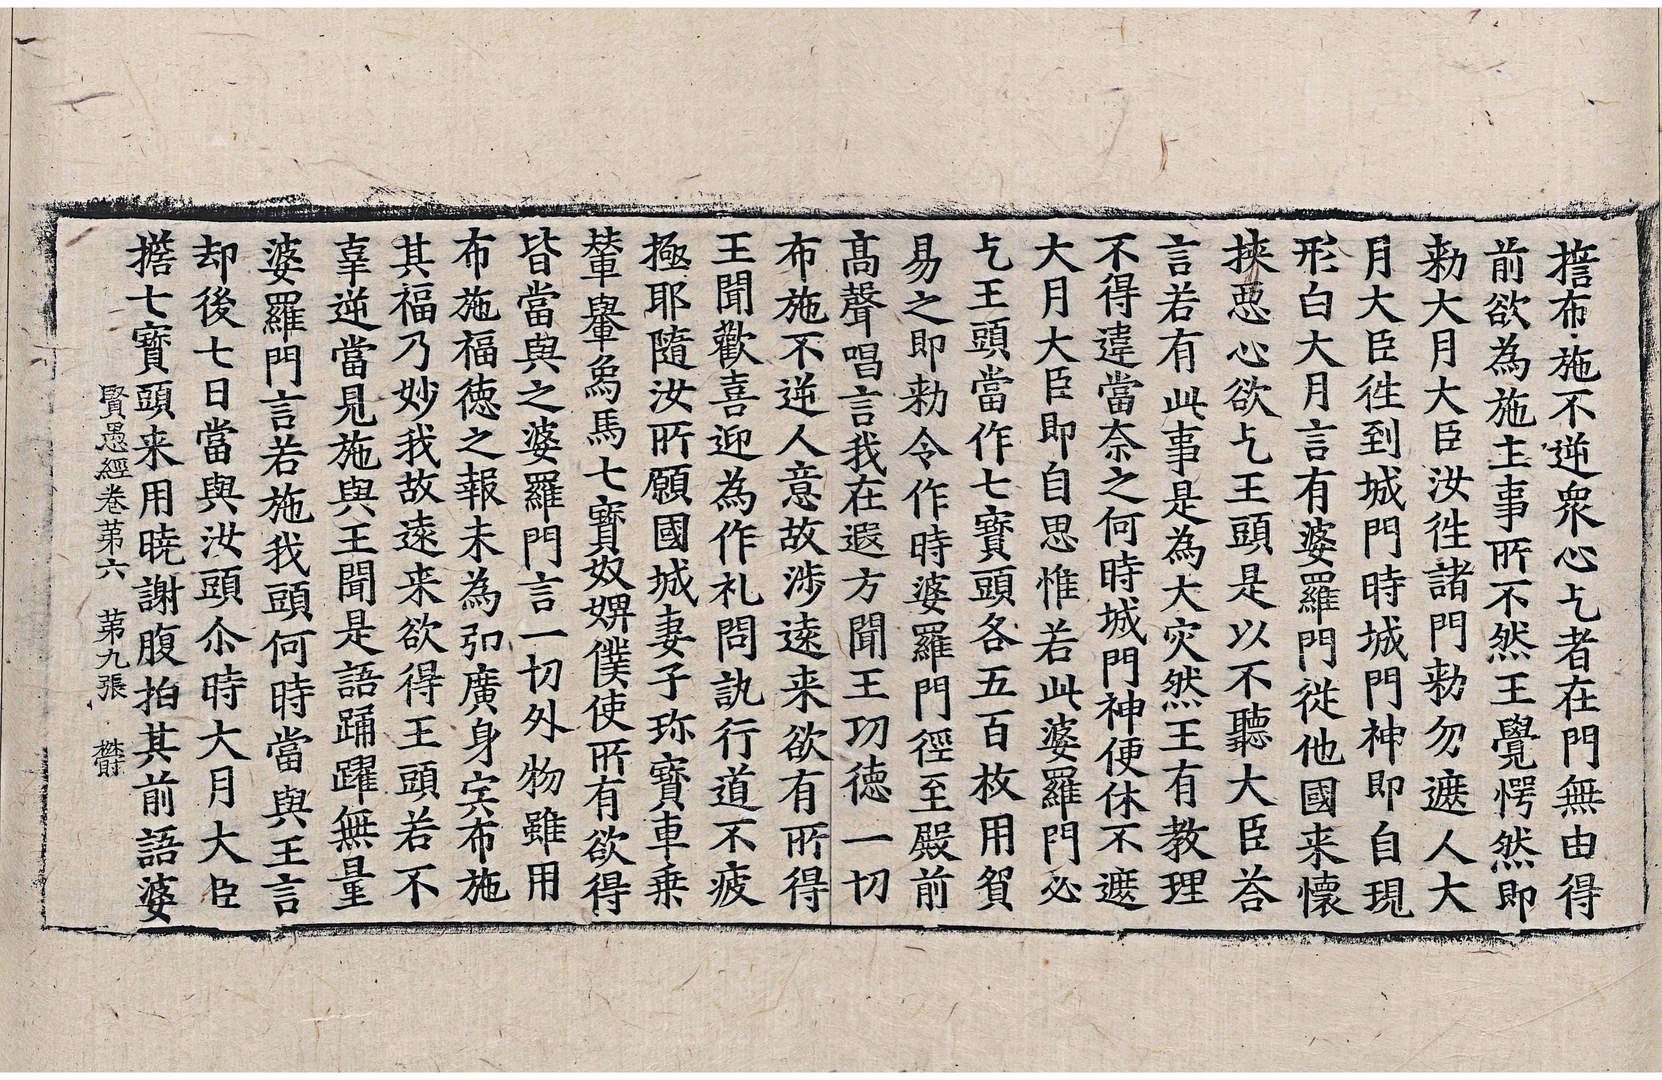 擔布施不逆衆心乞者在門無由得
前欲為施主事所不然王覺愕然即
勑大月大臣汝徃諸門勑勿遮人大
月大臣徃到城門時城門神即自現
形白大月言有婆羅門從他國来懷
挾惡心欲乞王頭是以不聽大臣荅
言若有此事是為大灾然王有教理
不得違當奈之何時城門神便休不遮
大月大臣即自思惟若此婆羅門必
乞王頭當作七寶頭各五百枚用貿
易之即勑令作時婆羅門徑至殿前
髙聲唱言我在遐方聞王功德一切
布施不逆人意故涉逺来欲有所得
王聞歡喜迎為作礼問訊行道不疲
極耶隨汝所願國城妻子珎寶車乗
輦轝象馬七寶奴婢僕使所有欲得
皆當與之婆羅門言一切外物雖用
布施福徳之報未為弘廣身宍布施
其福乃妙我故逺来欲得王頭若不
辜逆當見施與王聞是語踊躍無量
婆羅門言若施我頭何時當與王言
却後七日當與汝頭尒時大月大臣
擔七寶頭来用曉謝腹拍其前語婆
賢愚經卷第六　第九張